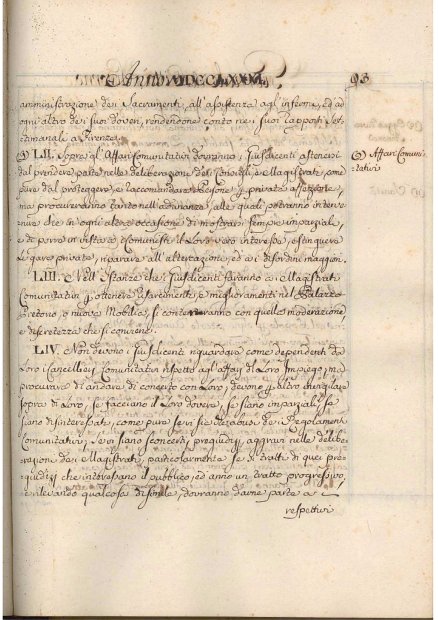 Anno MDCCLXXXI. 93
amministrazione dei Sacramenti, all'assistenza agl'infermi, ed ad
ogni altro dei suoi doveri, rendendone conto nei suoi rapporti set-
timanali a Firenze.
LII. Sopra gl'Affari Comunitativi dovranno i Giusdicenti astenersi
dal prendere parte nelle deliberazioni dei Consigli, e Magistrati, come
pure dal proteggere, e raccomandare Persone, e private
ma procureranno tanto nell'adunanze, alle quali potranno interve-
nire che in ogni altra occasione di mostrarsi sempre imparziali,
e di porre in vista a i Comunisti il Loro vero interesse, estinguere
Le gare private, riparare all' ed a i disordini maggiori.
Affari Comuni-
tativi
LIII. Nell'Istanze che i Giusdicenti faranno a i Magistrati
Comunitativi p. ottenere risarcimenti, e miglioramenti nel Palazzo
Pretorio, o nuova Mobilia, si conterranno con quella moderazione
e discretezza che si conviene.
LIV. Non devono i Giusdicenti riguardare come dependenti da
Loro i Cancellieri Comunitativi rispetto agl'affari di Loro Impiego, ma
procurare di andare di concerto con Loro, devono p. altro invigilare
sopra di Loro, se facciano il Loro dovere, se siano imparziali, se
siano disinteressati, come pure se vi sia dei Regolamenti
Comunitativi, se vi siano sconcerti, pregiudizj, aggravi nelle delibe-
razioni dei Magistrati, particolarmente se si tratti di quei pre-
giudizj che interessano il pubblico, ed anno un tratto progressivo,
e rilevando qualcosa di simile, dovranno darne parte a i
respettivi